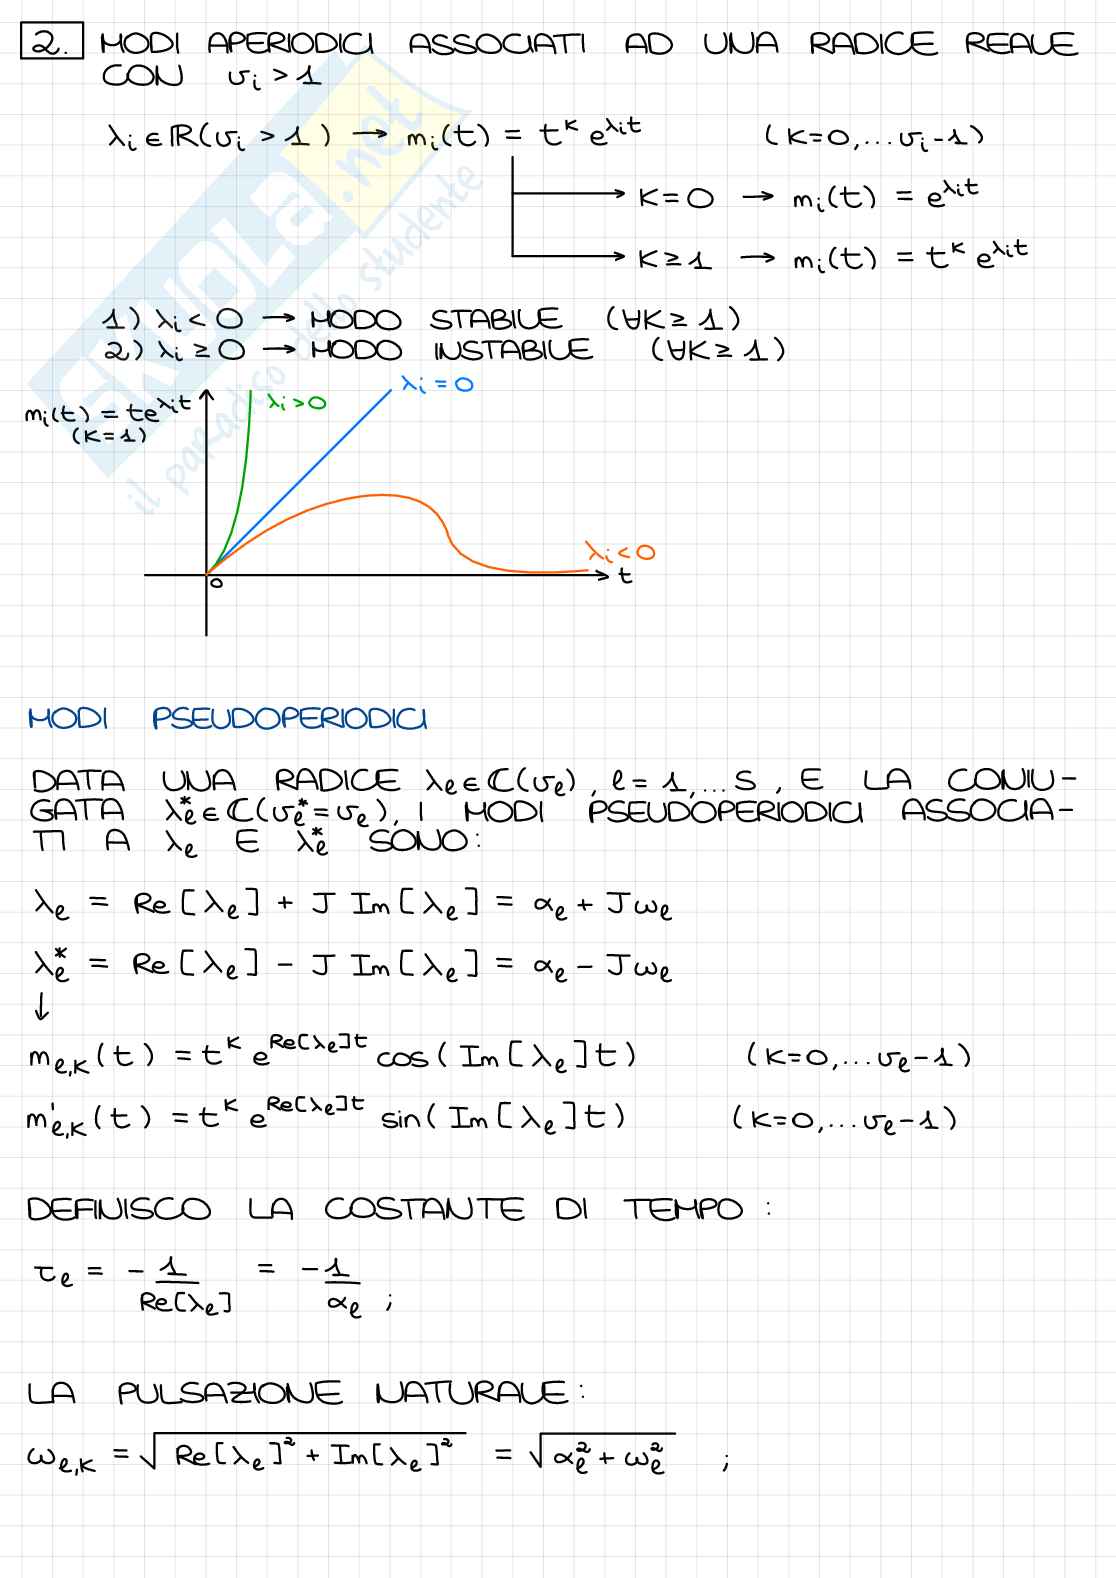 2. MODI APERIODICI ASSOCIATI AD UNA RADICE REALE
CON νi > 1
λi ∈ ℝ(νi > 1) → mi(t) = t^K e^λit (K=0,...νi-1)
K=0 → mi(t) = e^λit
K≥1 → mi(t) = t^K e^λit
1) λi < 0 → MODO STABILE (∀K≥1)
2) λi ≥ 0 → MODO INSTABILE (∀K≥1)
mi(t) = te^λit
(K=1)
λi>0
λi=0
λi<0
0
t
MODI PSEUDOPERIODICI
DATA UNA RADICE λℓ∈ℂ(νℓ), ℓ=1,...S, E LA CONIU-
GATA λℓ*∈ℂ(νℓ*=νℓ), I MODI PSEUDOPERIODICI ASSOCIA-
TI A λℓ E λℓ* SONO:
λℓ = Re[λℓ] + J Im[λℓ] = αℓ + Jωℓ
λℓ* = Re[λℓ] - J Im[λℓ] = αℓ - Jωℓ
↓
mℓ,K(t) = t^K e^Re[λℓ]t cos(Im[λℓ]t) (K=0,...νℓ-1)
m'ℓ,K(t) = t^K e^Re[λℓ]t sin(Im[λℓ]t) (K=0,...νℓ-1)
DEFINISCO LA COSTANTE DI TEMPO:
τℓ = -1/Re[λℓ] = -1/αℓ ;
LA PULSAZIONE NATURALE:
ωℓ,K = √(Re[λℓ]² + Im[λℓ]²) = √(αℓ² + ωℓ²) ;
SKUOLA.net
il paradiso dello studente